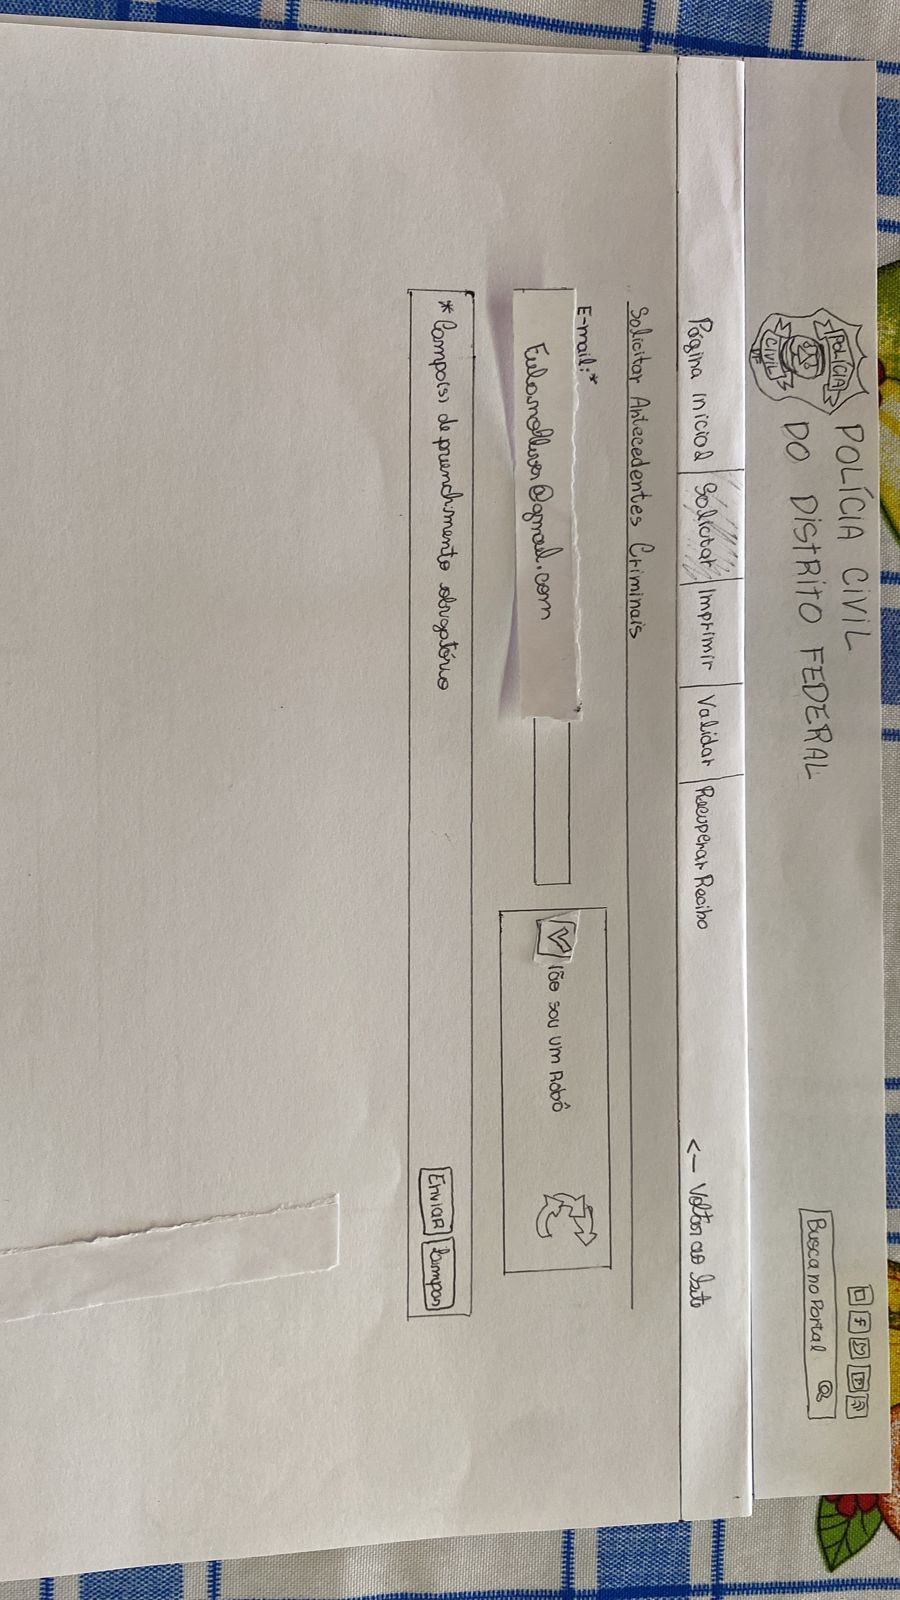 POLÍCIA
CIVIL
DF
POLÍCIA CIVIL
DO DISTRITO FEDERAL
Busca no Portal
Página inicial
Solicitar
Imprimir
Validar
Recuperar Recibo
<— Voltar ao
Solicitar Antecedentes Criminais
E-mail:*
@gmail.com
ão sou um Robô
* Campo(s) de preenchimento obrigatório
Enviar
Limpar